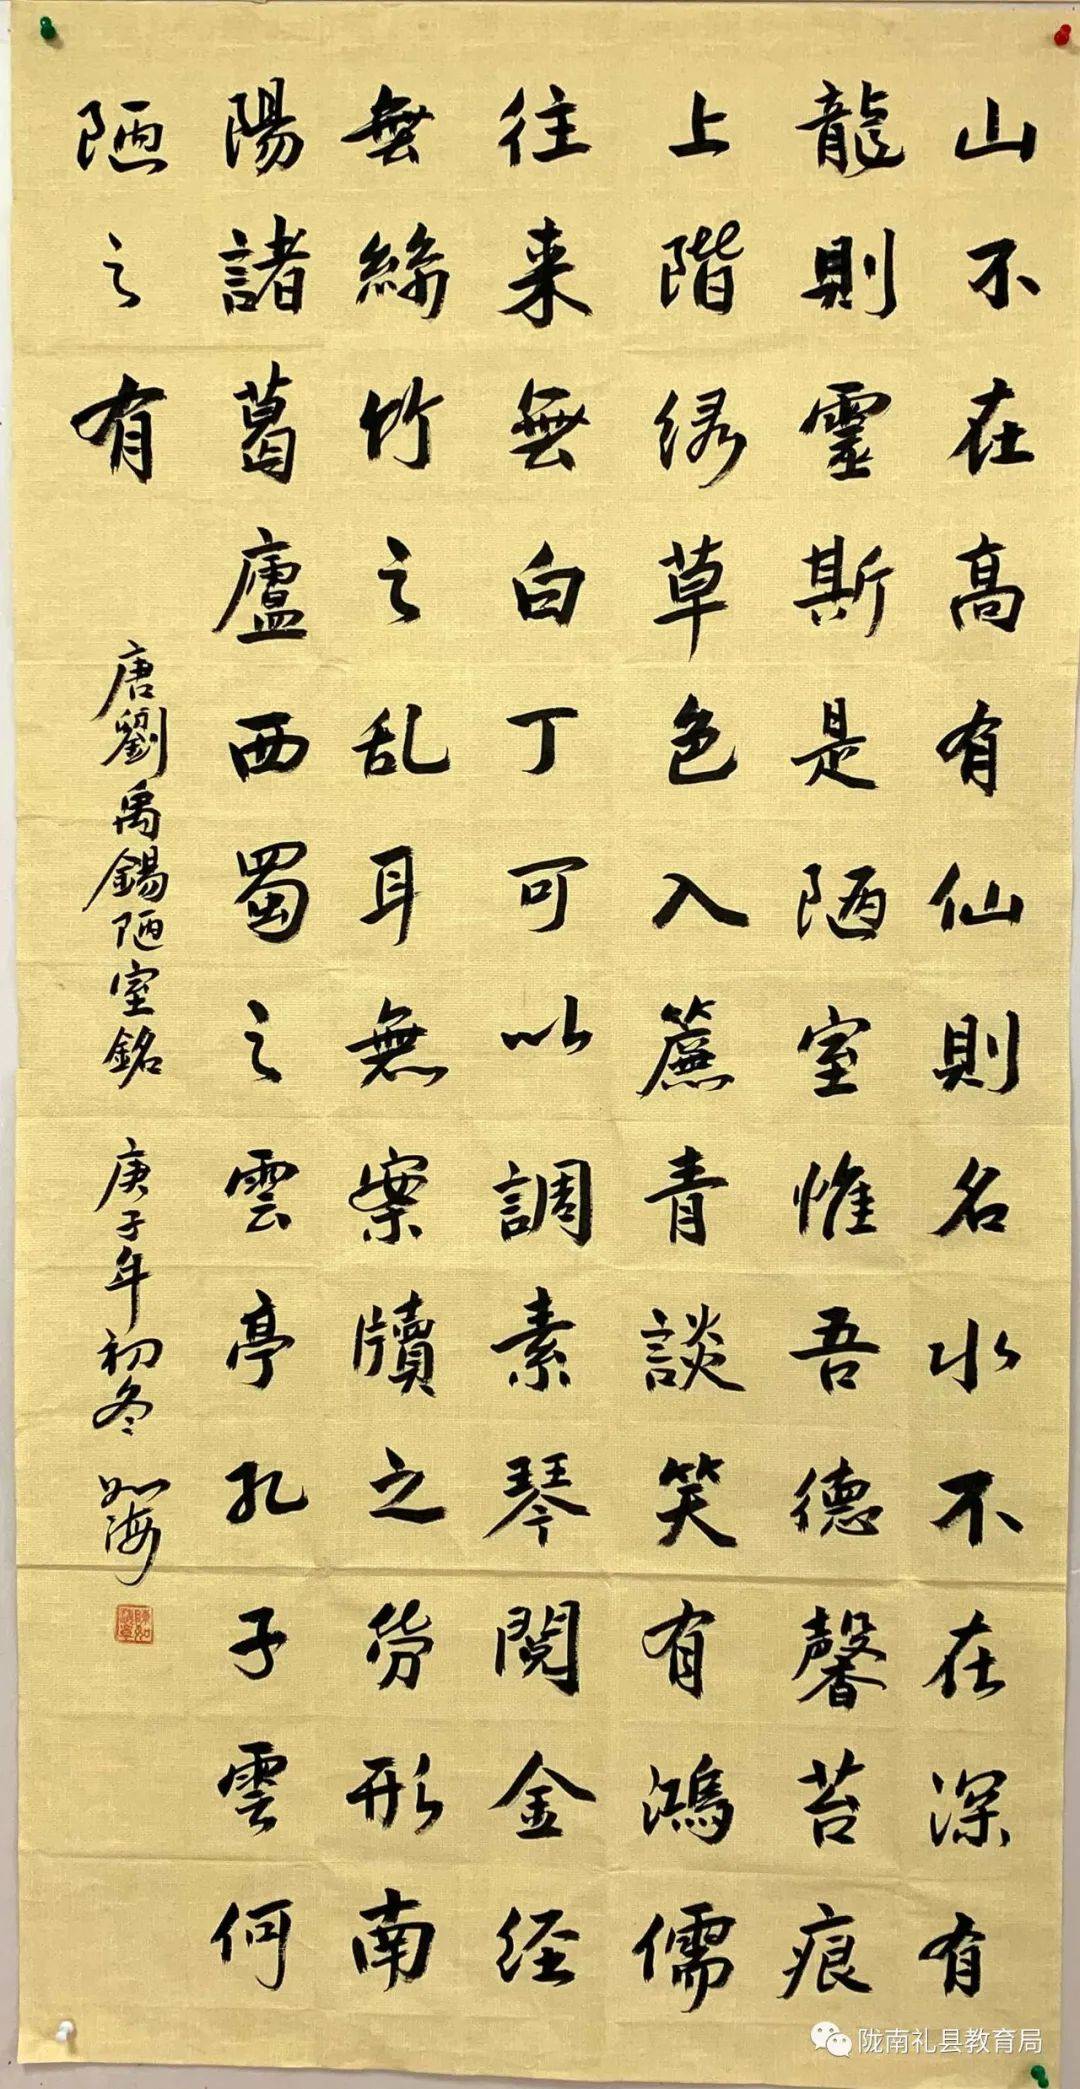 山不在高有仙则名水不在深有
龍則靈斯是陋室惟吾德馨苔痕
上階绿草色入簾青談笑有鴻儒
往来無白丁可以調素琴閱金经
無絲竹之乱耳無案牘之劳形南
陽諸葛廬西蜀之雲亭孔子雲何
陋之有
唐劉禹錫陋室銘 庚子年初冬 如海
陇南礼县教育局